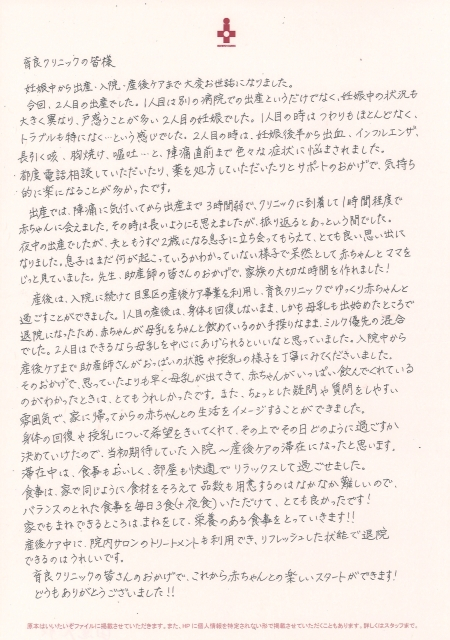 育良クリニックの皆様
妊娠中から出産・入院・産後ケアまで大変お世話になりました。
今回、2人目の出産でした。1人目は別の病院での出産というだけでなく、妊娠中の状況も
大きく異なり、戸惑うことが多い2人目の妊娠でした。1人目の時はつわりもほとんどなく、
トラブルも特になく…という感じでした。2人目の時は、妊娠後半から出血、インフルエンザ、
長引く咳、胸焼け、嘔吐…と、陣痛直前まで色々な症状に悩まされました。
都度電話相談していただいたり、薬を処方していただいたりとサポートのおかげで、気持ち
的に楽になることが多かったです。
出産では、陣痛に気付いてから出産まで3時間弱で、クリニックに到着して1時間程度で
赤ちゃんに会えました。その時は長いようにも思えましたが、振り返るとあっという間でした。
夜中の出産でしたが、夫ともうすぐ2歳になる息子に立ち会ってもらえて、とても良い思い出に
なりました。息子はまだ何が起こっているかわかっていない様子で呆然として赤ちゃんとママを
じっと見ていました。先生、助産師の皆さんのおかげで、家族の大切な時間を作れました!
産後は、入院に続けて目黒区の産後ケア事業を利用し、育良クリニックでゆっくり赤ちゃんと
過ごすことができました。1人目の産後は、身体も回復しないまま、しかも母乳も出始めたところで
退院になったため、赤ちゃんが母乳をちゃんと飲めているのか手探りなまま、ミルク優先の混合
でした。2人目はできるなら母乳を中心にあげられるといいなと思っていました。入院中から
産後ケアまで助産師さんがおっぱいの状態や授乳の様子を丁寧にみてくださいました。
そのおかげで、思っていたよりも早く母乳が出てきて、赤ちゃんがいっぱい飲んでくれている
のがわかったときは、とてもうれしかったです。また、ちょっとした疑問や質問をしやすい
雰囲気で、家に帰ってからの赤ちゃんとの生活をイメージすることができました。
身体の回復や授乳について希望をきいてくれて、その上でその日どのように過ごすか
決めていけたので、当初期待していた入院〜産後ケアの滞在になったと思います。
滞在中は、食事もおいしく、部屋も快適でリラックスして過ごせました。
食事は、家で同じように食材をそろえて品数も用意するのはなかなか難しいので、
バランスのとれた食事を毎日3食(+夜食)いただけて、とても良かったです!
家でもまねできるところは、まねをして、栄養のある食事をとっていきます!!
産後ケア中に、院内サロンのトリートメントも利用でき、リフレッシュした状態で退院
できるのはうれしいです。
育良クリニックの皆さんのおかげで、これから赤ちゃんとの楽しいスタートができます!
どうもありがとうございました!!
原本はいいたいぞファイルに掲載させていただきます。また、HPに個人情報を特定されない形で掲載させていただくこともあります。詳しくはスタッフまで。